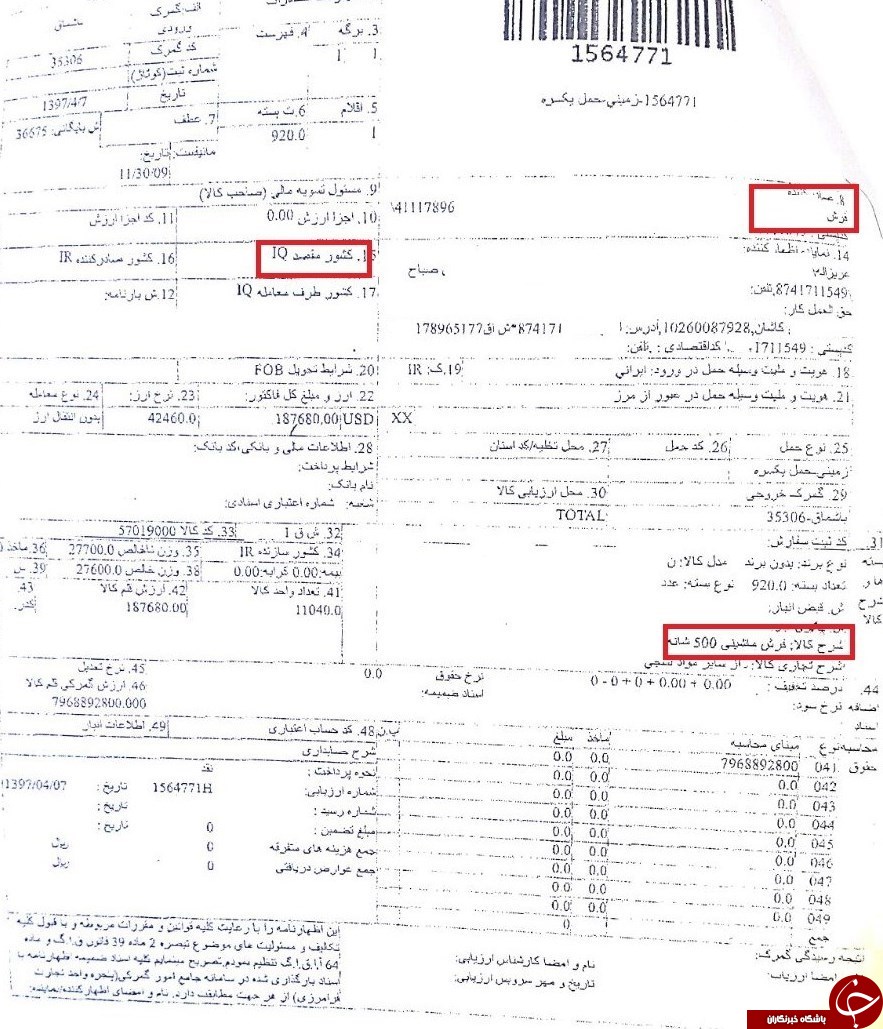 باشماق
35306
الف:گمرک
ورودی
کد گمرک
شماره ثبت(کوتاژ)
تاریخ
1397/4/7
3. برگه
1
4. فهرست
1
1564771
1564771-زمینی-حمل یکسره
5. اقلام
1
6.ت بسته
920.0
7. عطف
ش بایگانی: 36675
مانیفست:
تاریخ:
11/30/09
8.
فرش
\41117896
9. مسئول تسویه مالی (صاحب کالا)
10. اجزا ارزش 0.00
11. کد اجزا ارزش
14. نماینده اظهار کننده:
، صباح
8741711549,تلفن:
حق العمل کار:
کاشان,10260087928,آدرس:
178965177
874171
1711549
15. کشور مقصد IQ
16. کشور صادرکننده IR
17. کشور طرف معامله IQ
12.ش بارنامه:
18. هویت و ملیت وسیله حمل در ورود: ایرانی
19.ک: IR
20. شرایط تحویل FOB
21. هویت و ملیت وسیله حمل در عبور از مرز
XX
22. ارز و مبلغ کل فاکتور:
187680.00 USD
23. نرخ ارز:
42460.0
24. نوع معامله
بدون انتقال ارز
25. نوع حمل
زمینی-حمل یکسره
26. کد حمل
27. محل تخلیه/کد استان
28. اطلاعات مالی و بانکی/کد بانک:
شرایط پرداخت:
نام بانک:
شعبه: شماره اعتباری اسنادی:
29. گمرک خروجی
باشماق-35306
30. محل ارزیابی کالا
TOTAL
31. کد ثبت سفارش:
بسته ها و شرح کالا
نوع برند: بدون برند مدل کالا: ن
تعداد بسته: 920.0 نوع بسته: عدد
ش. قبض انبار:
شرح کالا: فرش ماشینی 500 شانه
شرح تجاری کالا: از سایر مواد نسجی
32. ش ق 1
33. کد کالا 57019000
34. کشور سازنده IR
35. وزن ناخالص 27700.0
36. ماخذ
بیمه:0.00 کرایه:0.00
38. وزن خالص 27600.0
39. س
41. تعداد واحد کالا
11040.0
42. ارزش قلم کالا
187680.00
43.
44. درصد تخفیف: 0.00 + 0.00 + 0 + 0 - 0
نرخ سود:
اضافه
اسناد
نرخ حقوق 0.0
اسناد ضمیمه:
45. نرخ تعدیل
46. ارزش گمرکی قلم کالا
7968892800.000
محاسبه نوع
مبنای محاسبه
ماخذ
مبلغ
ب.ن
حقوق 041 7968892800 0.0 0.0
042 0.0 0.0 0.0
043 0.0 0.0 0.0
044 0.0 0.0 0.0
045 0.0 0.0 0.0
046 0.0 0.0 0.0
047 0.0 0.0 0.0
048 0.0 0.0 0.0
049 0.0 0.0 0.0
جمع 0
48. کد حساب اعتباری
49. اطلاعات انبار
شرح حسابداری
نحوه پرداخت: نقد
شماره ارزیابی: 1564771H تاریخ: 1397/04/07
شماره رسید: تاریخ:
مبلغ تضمین: 0 تاریخ:
جمع هزینه های متفرقه 0 ریال
جمع عوارض دریافتی 0 ریال
نام و امضا کارشناس ارزیابی:
تاریخ و مهر سرویس ارزیابی:
نتیجه رسیدگی گمرک:
امضا ارزیاب:
این اظهارنامه را با رعایت کلیه قوانین و مقررات مربوطه و با قبول کلیه
تکالیف و مسئولیت های موضوع تبصره 2 ماده 39 قانون ق.ا.گ و ماده
64 آ.ا.ق.ا.گ تنظیم نمودم.تصریح مینمایم کلیه اسناد ضمیمه اظهارنامه با
اسناد بارگذاری شده در سامانه جامع امور گمرکی(پنجره واحد تجارت
فرامرزی) از هر جهت مطابقت دارد. نام و امضای اظهارکننده/نماینده:
باشگاه خبرنگاران